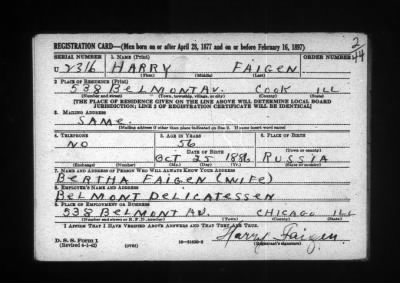 REGISTRATION CARD—(Men born on or after April 28, 1877 and on or before February 16, 1897)
SERIAL NUMBER 1. NAME (Print) ORDER NUMBER
U 2316 HARRY FAIGEN
(First) (Middle) (Last)
2. PLACE OF RESIDENCE (Print)
538 BELMONT AV. COOK ILL
(Number and street) (Town, township, village, or city) (County) (State)
[THE PLACE OF RESIDENCE GIVEN ON THE LINE ABOVE WILL DETERMINE LOCAL BOARD
JURISDICTION; LINE 2 OF REGISTRATION CERTIFICATE WILL BE IDENTICAL]
3. MAILING ADDRESS
SAME.
[Mailing address if other than place indicated on line 2. If same insert word same]
4. TELEPHONE 5. AGE IN YEARS 6. PLACE OF BIRTH
NO 56
DATE OF BIRTH (Town or county)
OCT 25 1886 RUSSIA
(Exchange) (Number) (Mo.) (Day) (Yr.) (State or country)
7. NAME AND ADDRESS OF PERSON WHO WILL ALWAYS KNOW YOUR ADDRESS
BERTHA FAIGEN (WIFE)
8. EMPLOYER'S NAME AND ADDRESS
BELMONT DELICATESSEN
9. PLACE OF EMPLOYMENT OR BUSINESS
538 BELMONT AV. CHICAGO ILL
(Number and street or R. F. D. number) (Town) (County) (State)
I AFFIRM THAT I HAVE VERIFIED ABOVE ANSWERS AND THAT THEY ARE TRUE.
D. S. S. Form 1
(Revised 4-1-42) (over)
Harry Faigen.
(Registrant's signature)